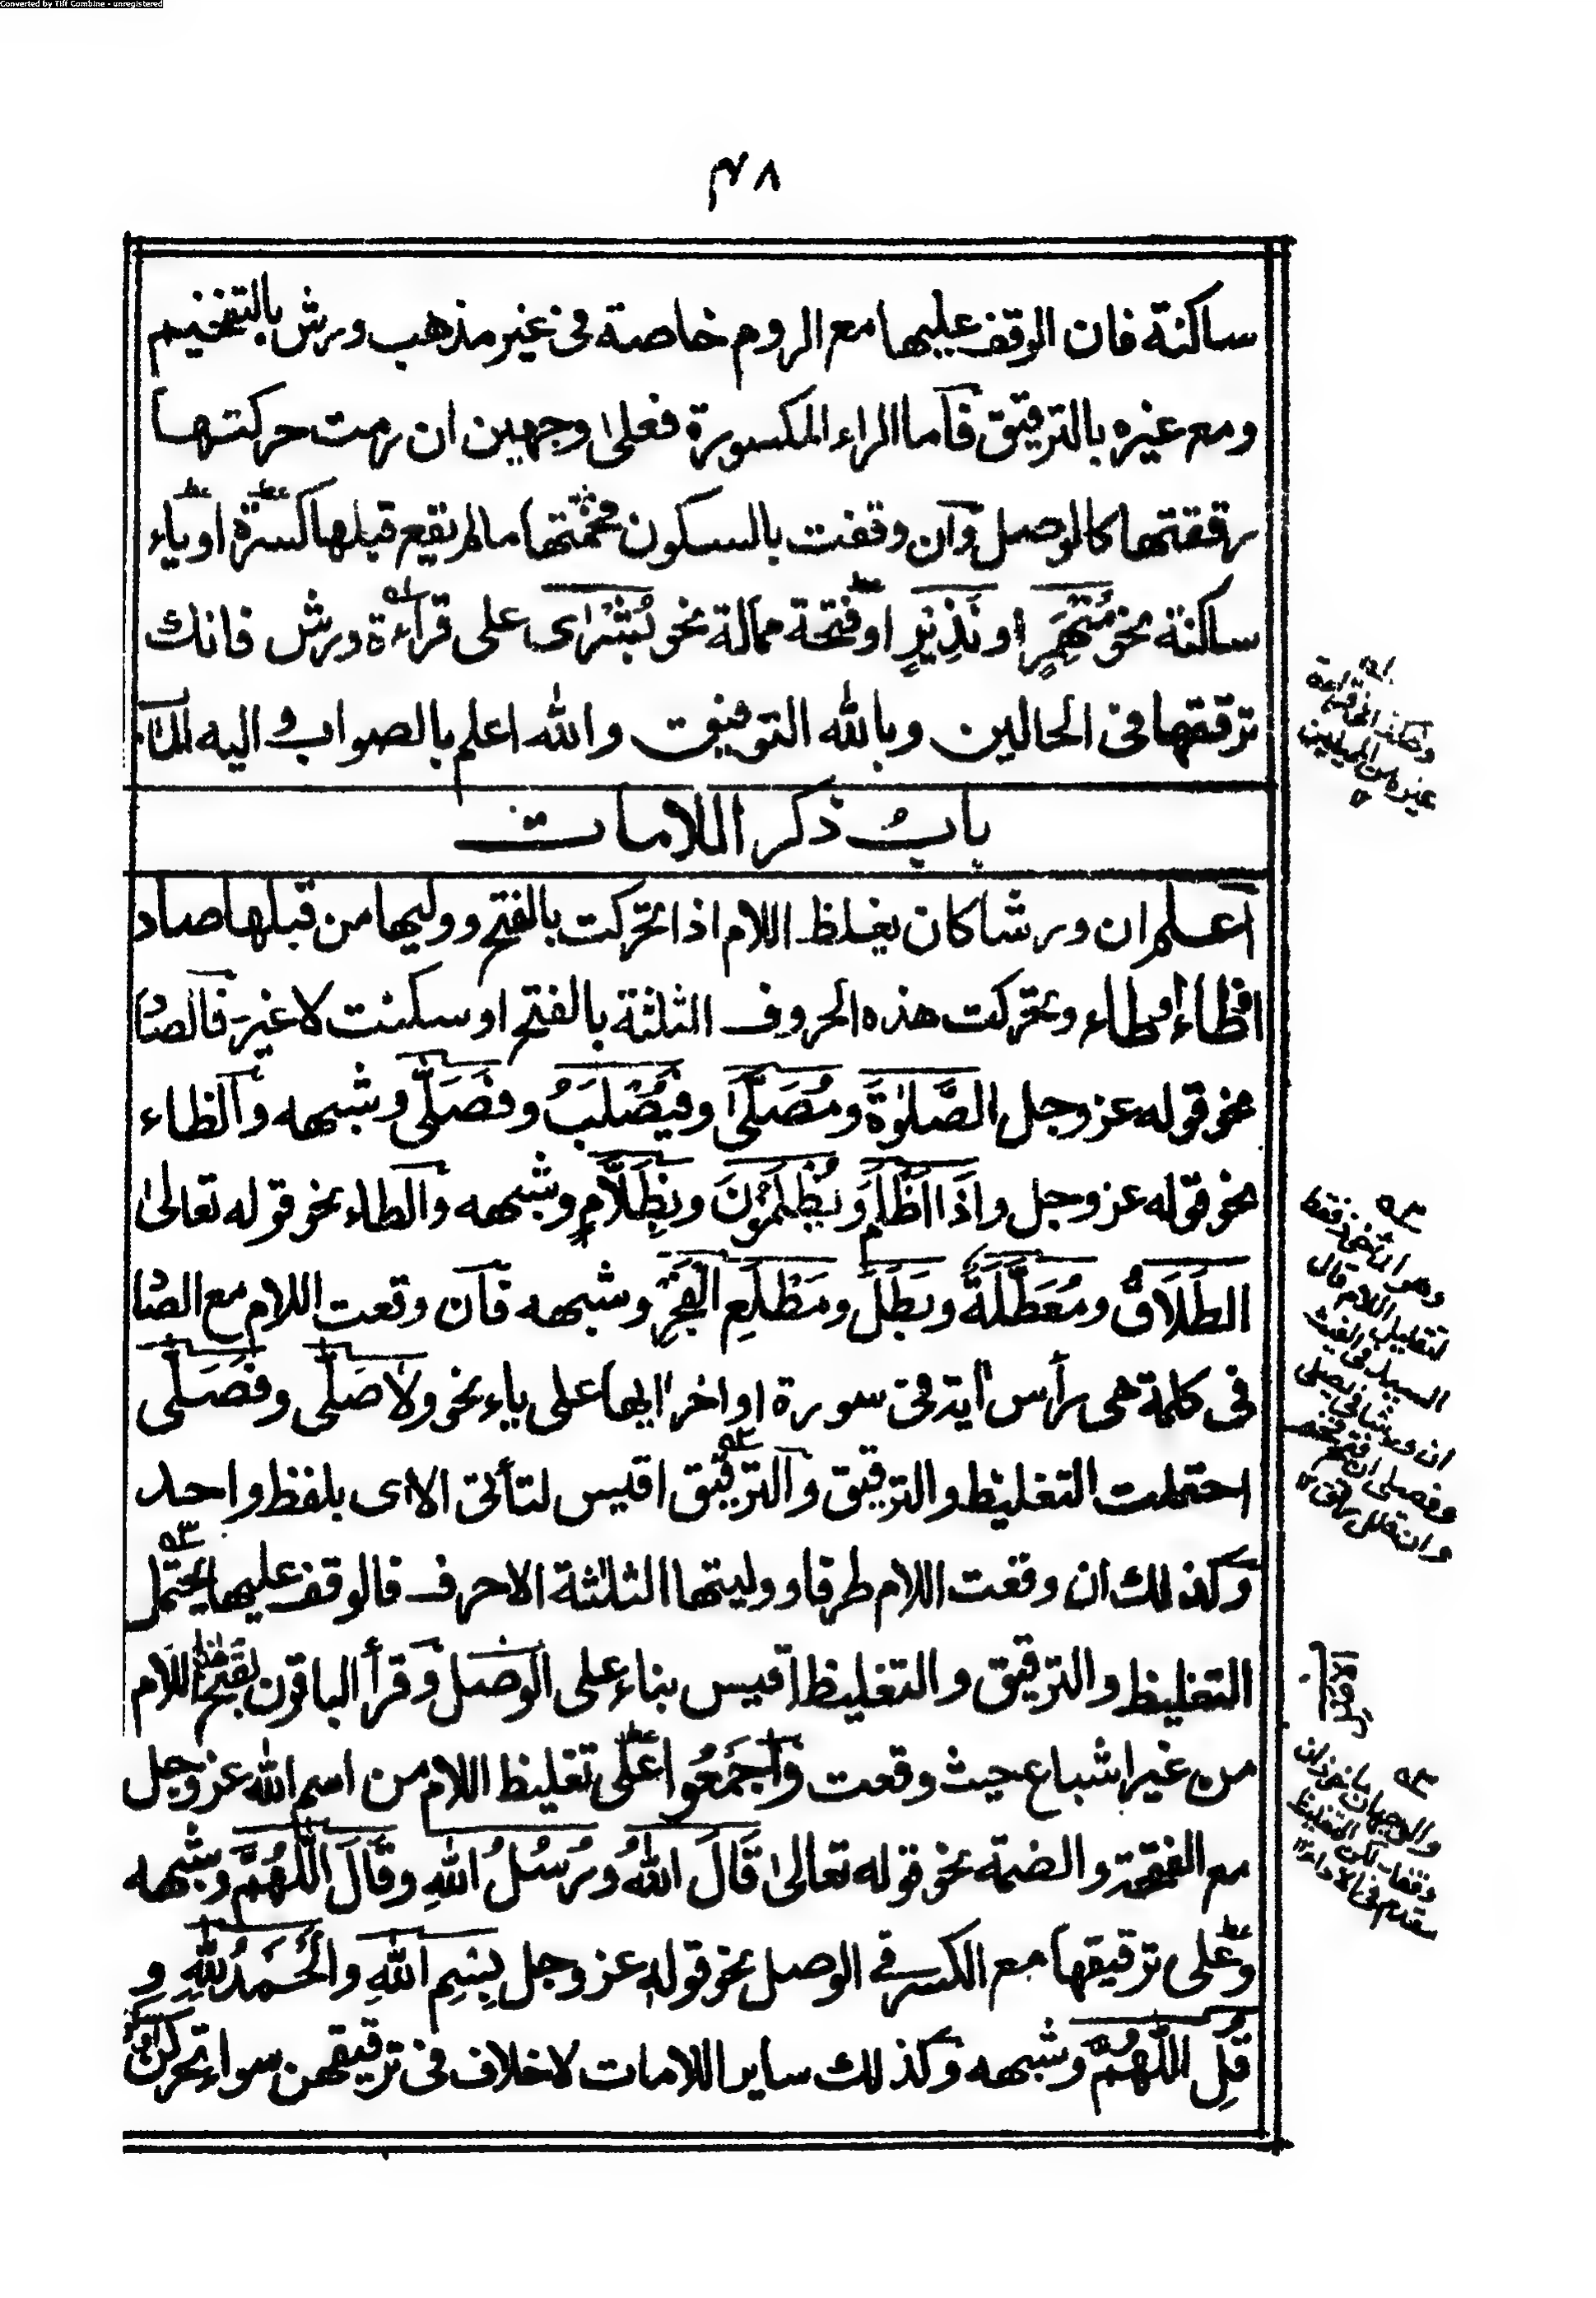 Converted by Tiff Combine - unregistered
٤٨
ساكنة فان الوقف عليها مع الروم خاصة فى غير مذهب ورش بالتفخيم
ومع غيره بالترقيق فاما الراء المكسورة فعلى وجهين ان رمت حركتها
رققتها كالوصل وان وقفت بالسكون فخمتها مالم يقع قبلها كسرة او ياء
ساكنة نحو مُنْهَمِرٍ او نَذِيْرٍ او فتحة ممالة نحو بُشْرَاى على قراءة ورش فانك
ترققها فى الحالين وبالله التوفيق والله اعلم بالصواب و اليه المآب
باب ذكر اللامات
اعلم ان ورشا كان يغلظ اللام اذا تحركت بالفتح ووليها من قبلها صاد
اوظاء اوطاء وتحركت هذه الحروف الثلثة بالفتح او سكنت لا غير فالصاد
نحو قوله عز وجل الصَّلٰوةَ ومُصَلًّى وفَيُصْلَبُ وفَصَلّٰى وشبهه والظاء
نحو قوله عز وجل واذَا اَظْلَمَ ويُظْلَمُوْنَ وبِظَلَّامٍ وشبهه والطاء نحو قوله تعالى
الطَلَاقُ ومُعَطَّلَةٌ وبَطَلَ ومَطْلَعِ الْفَجْرِ وشبهه فان وقعت اللام مع الصاد
فى كلمة هى رأس اية فى سورة اواخر ايها على ياء نحو ولا صَلّٰى وفَصَلّٰى
احتملت التغليظ والترقيق والترقيق اقيس لتأتى الاى بلفظ واحد
وكذلك ان وقعت اللام طرفا ووليتها الثلثة الاحرف فالوقف عليها يحتمل
التغليظ والترقيق والتغليظ اقيس بناء على الوصل وقرأ الباقون بفتح اللام
من غير اشباع حيث وقعت واجمعوا على تغليظ اللام من اسم الله عز وجل
مع الفتحة والضمة نحو قوله تعالى قَالَ اللهُ ورُسُلُ اللهِ وقَالَ اللّٰهُمَّ وشبهه
وعلى ترقيقها مع الكسر فى الوصل نحو قوله عز وجل بِسْمِ اللهِ والْحَمْدُ لِلّٰهِ و
قُلِ اللّٰهُمَّ وشبهه وكذلك ساير اللامات لاخلاف فى ترقيقهن سواء تحركن